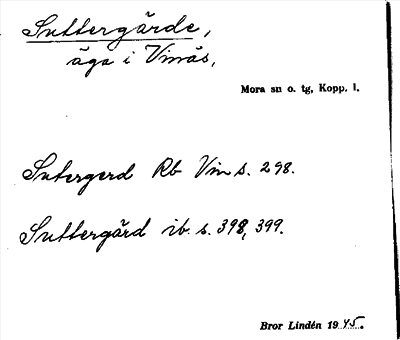 Suttergärde,
äga i Vinäs,
Mora sn o. tg, Kopp. l.
Sutergerd Rb Vin s. 298.
Suttergård ib. s. 398, 399.
Bror Lindén 1945.